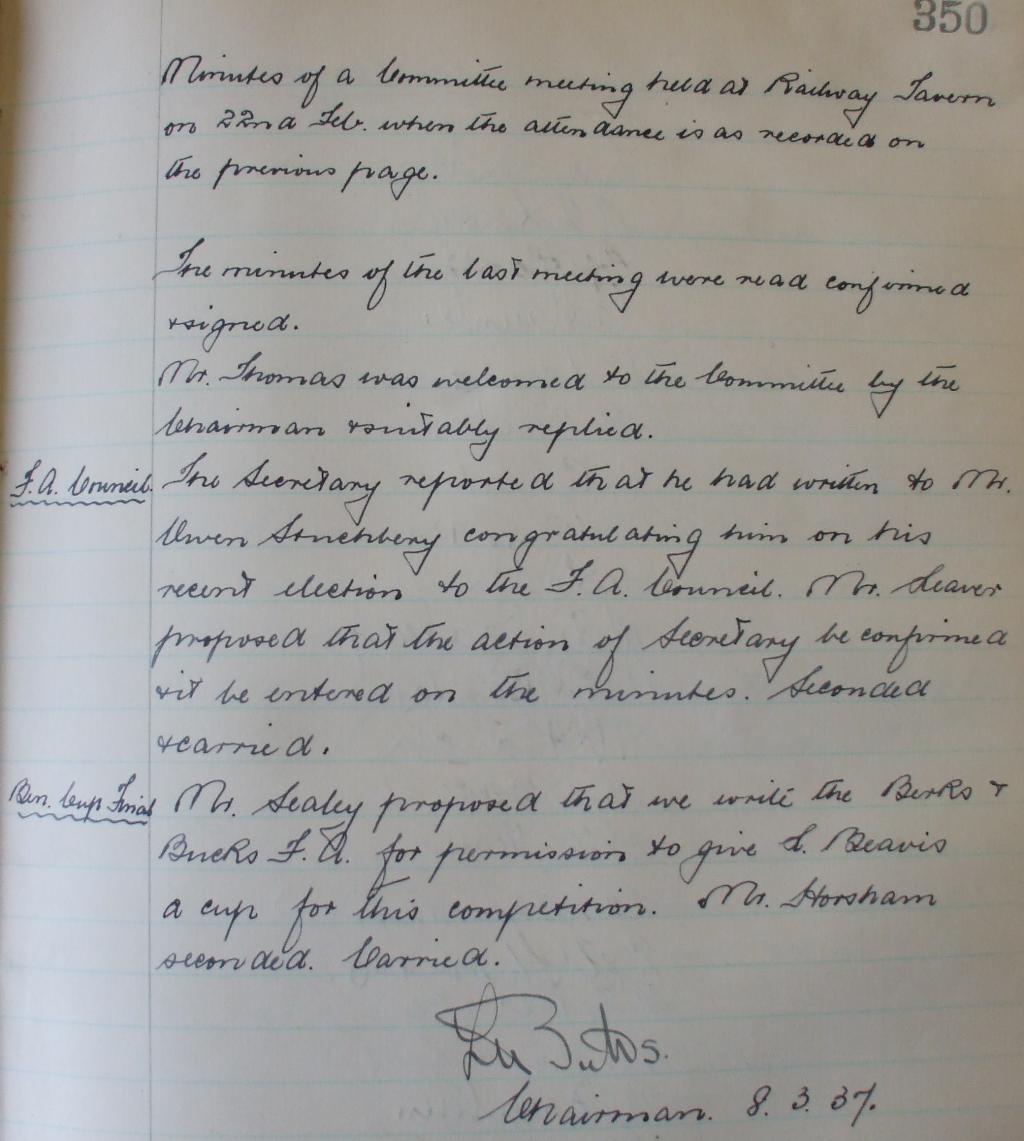 350
Minutes of a Committee meeting held at Railway Tavern
on 22nd Feb. when the attendance is as recorded on
the previous page.
The minutes of the last meeting were read confirmed
& signed.
Mr. Thomas was welcomed to the Committee by the
Chairman & suitably replied.
F.A. Council. The Secretary reported that he had written to Mr.
Owen Stuchbery congratulating him on his
recent election to the F.A. Council. Mr. Seaver
proposed that the action of Secretary be confirmed
& it be entered on the minutes. Seconded
& carried.
Ben. Cup Final Mr. Sealey proposed that we write the Berks &
Bucks F.A. for permission to give S. Beavis
a cup for this competition. Mr. Horsham
seconded. Carried.
Chairman. 8. 3. 37.